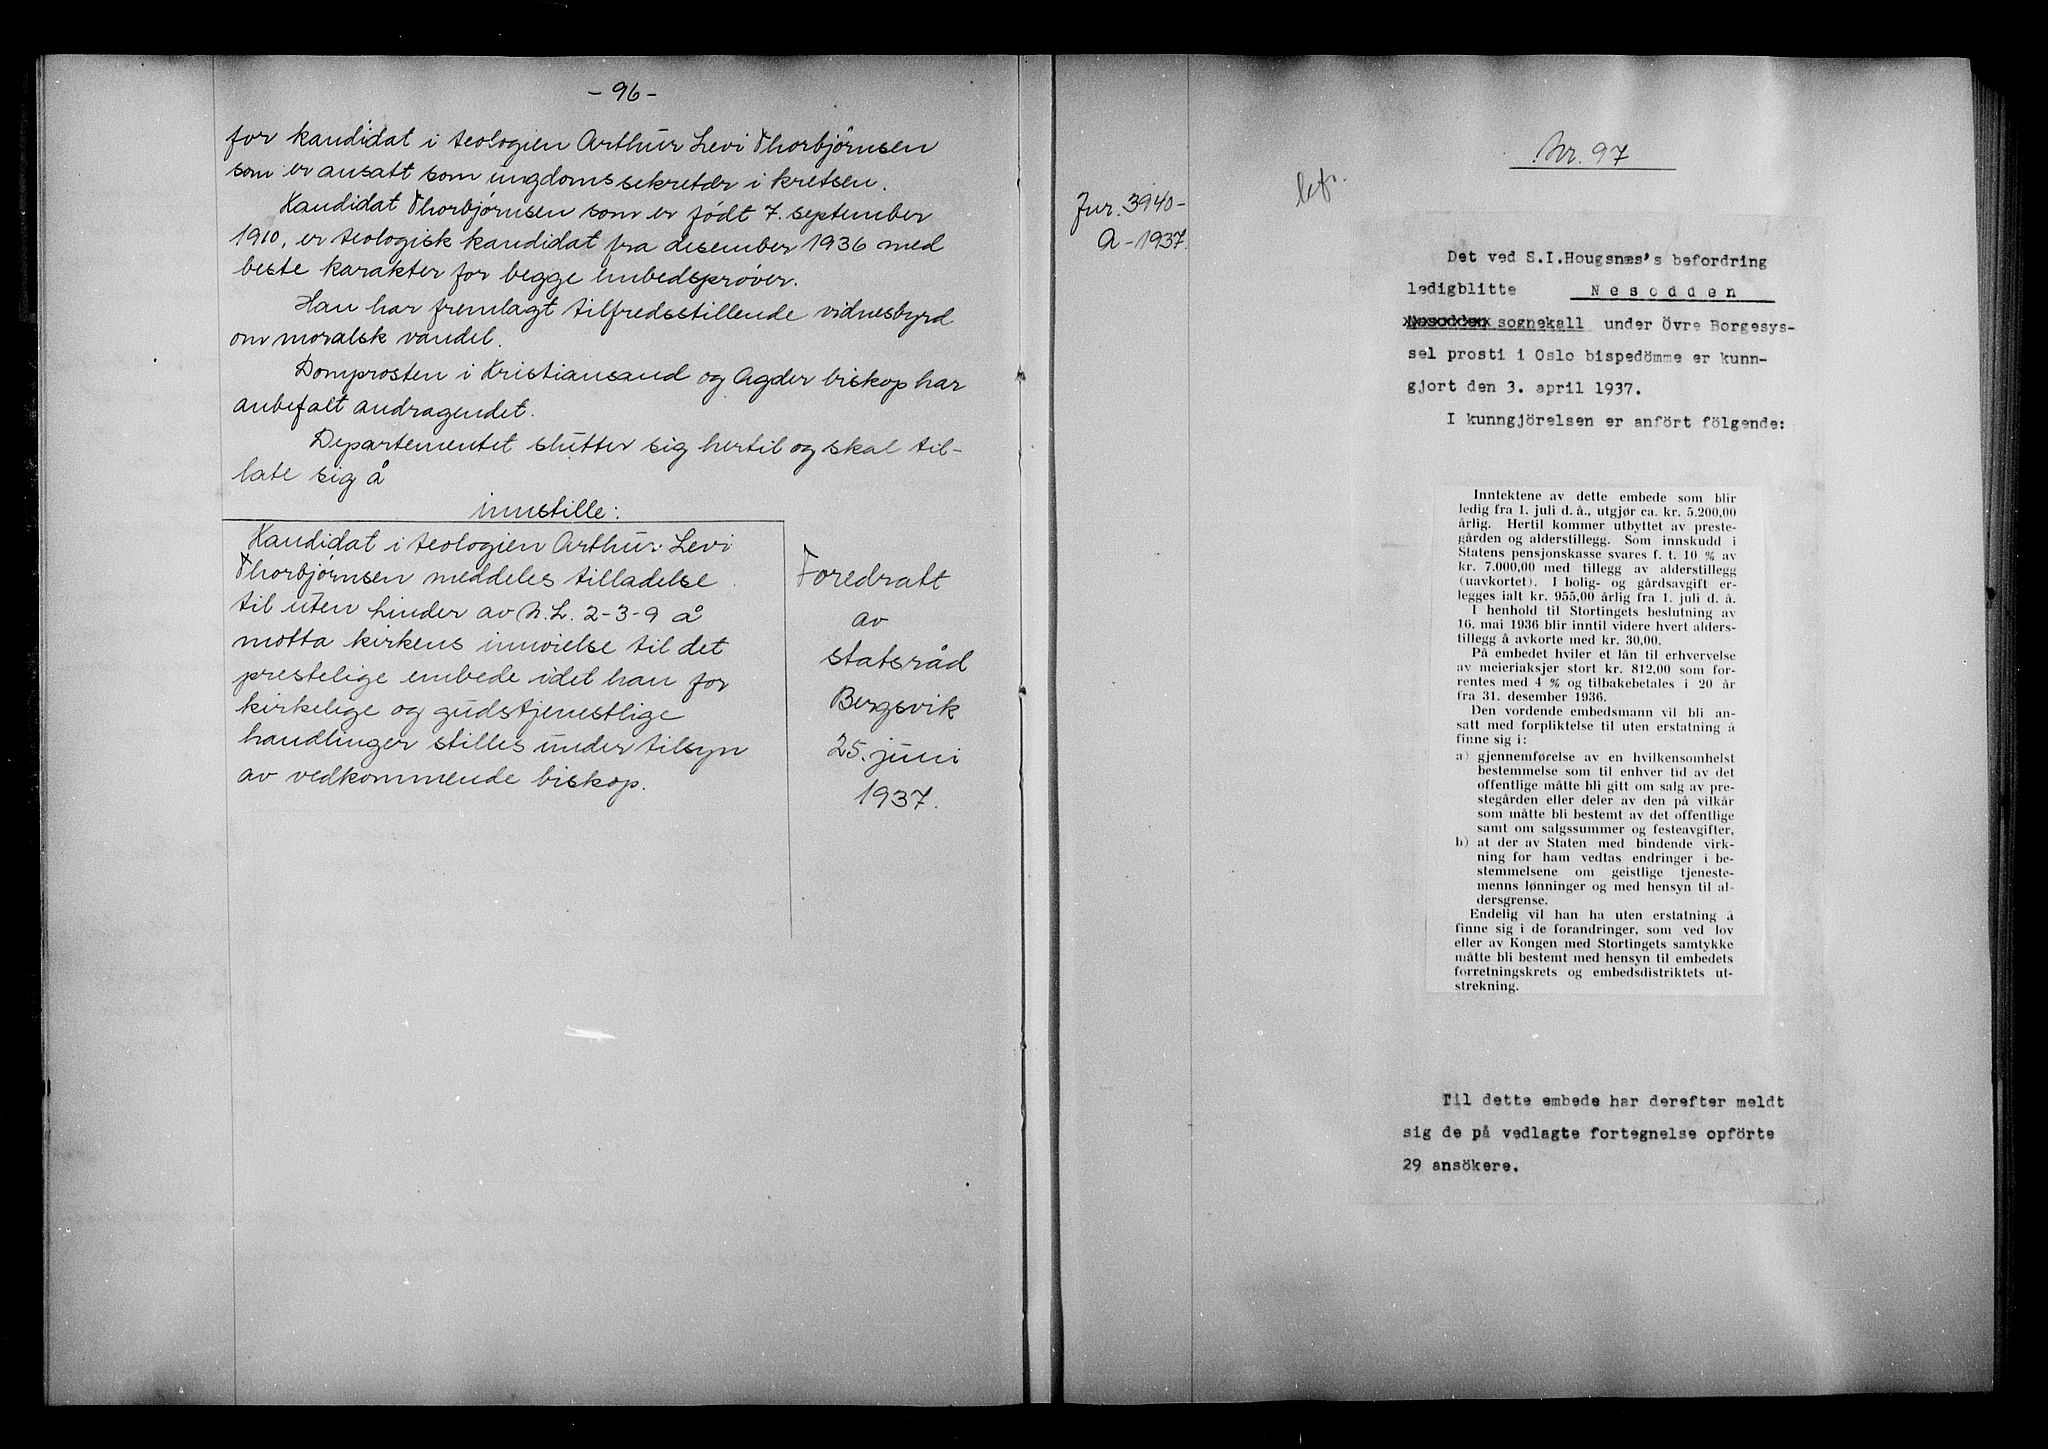 - 96 -
for kandidat i teologien Arthur Levi Thorbjørnsen
som er ansatt som ungdomssekretær i kretsen.
Kandidat Thorbjørnsen som er født 7. september
1910, er teologisk kandidat fra desember 1936 med
beste karakter for begge embedsprøver.
Han har fremlagt tilfredsstillende vidnesbyrd
om moralsk vandel.
Domprosten i Kristiansand og Agder biskop har
anbefalt andragendet.
Departementet slutter sig hertil og skal til-
late sig å
innstille:
Kandidat i teologien Arthur Levi
Thorbjørnsen meddeles tilladelse
til uten hinder av N.L. 2-3-9 å
motta kirkens innvielse til det
prestelige embede idet han for
kirkelige og gudstjenestlige
handlinger stilles under tilsyn
av vedkommende biskop.
Foredratt
av
statsråd
Bergsvik
25. juni
1937.
Nr. 97
Jnr. 3940-
A-1937.
Det ved S.I.Hougsnæs's befordring
ledigblitte Nesodden
Nesodden sognekall under Övre Borgesys-
sel prosti i Oslo bispedömme er kunn-
gjort den 3. april 1937.
I kunngjörelsen er anfört fölgende:
Inntektene av dette embede som blir
ledig fra 1. juli d. å., utgjør ca. kr. 5.200,00
årlig. Hertil kommer utbyttet av preste-
gården og alderstillegg. Som innskudd i
Statens pensjonskasse svares f. t. 10 % av
kr. 7.000,00 med tillegg av alderstillegg
(uavkortet). I bolig- og gårdsavgift er-
legges ialt kr. 955,00 årlig fra 1. juli d. å.
I henhold til Stortingets beslutning av
16. mai 1936 blir inntil videre hvert alders-
tillegg å avkorte med kr. 30,00.
På embedet hviler et lån til erhvervelse
av meieriaksjer stort kr. 812,00 som for-
rentes med 4 % og tilbakebetales i 20 år
fra 31. desember 1936.
Den vordende embedsmann vil bli an-
satt med forpliktelse til uten erstatning å
finne sig i:
a) gjennemførelse av en hvilkensomhelst
bestemmelse som til enhver tid av det
offentlige måtte bli gitt om salg av pre-
stegården eller deler av den på vilkår
som måtte bli bestemt av det offentlige
samt om salgssummer og festeavgifter,
b) at der av Staten med bindende virk-
ning for ham vedtas endringer i be-
stemmelsene om geistlige tjeneste-
menns lønninger og med hensyn til al-
dersgrense.
Endelig vil han ha uten erstatning å
finne sig i de forandringer, som ved lov
eller av Kongen med Stortingets samtykke
måtte bli bestemt med hensyn til embedets
forretningskrets og embedsdistriktets ut-
strekning.
Til dette embede har derefter meldt
sig de på vedlagte fortegnelse opförte
29 ansökere.